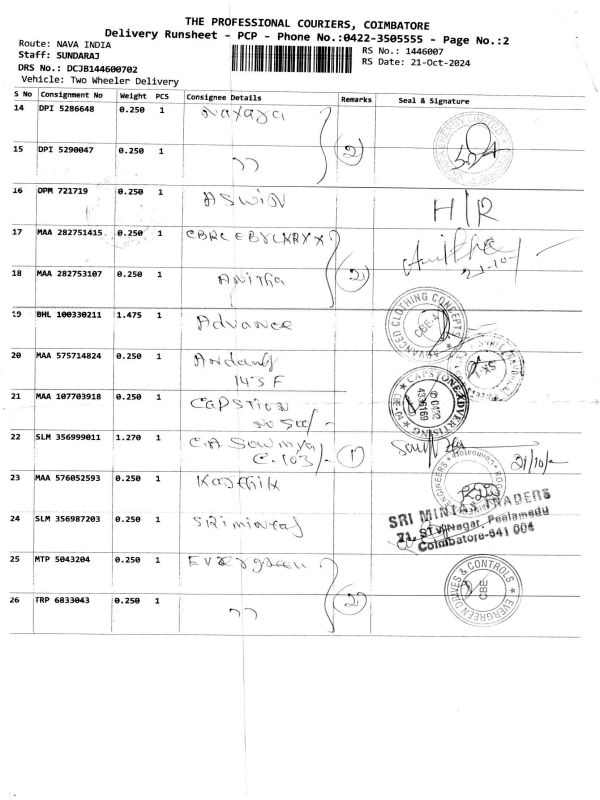 THE PROFESSIONAL COURIERS, COIMBATORE
Delivery Runsheet - PCP - Phone No.:0422-3505555 - Page No.:2
Route: NAVA INDIA
Staff: SUNDARAJ
RS No.: 1446007
RS Date: 21-Oct-2024
DRS No.: DCJB144600702
Vehicle: Two Wheeler Delivery
S No Consignment No Weight PCS Consignee Details Remarks Seal & Signature
14 DPI 5286648 0.250 1
15 DPI 5290047 0.250 1 " 2
16 DPM 721719 0.250 1 ASWIN H/R
17 MAA 282751415 0.250 1
18 MAA 282753107 0.250 1 ANITHA 2 Anitha 21-10-
19 BHL 100330211 1.475 1 Advance ADVANCED CLOTHING CONCEPTS CBE-4
20 MAA 575714824 0.250 1
143 F
21 MAA 107703918 0.250 1 CAPSTION CAPSTONE ADVERTISING 0422 4336169
22 SLM 356999011 1.270 1 C.A Sowmya
C.103/- 1 21/10/-
23 MAA 576052593 0.250 1 Karthik ENGINEERS
24 SLM 356987203 0.250 1 SRi mintaj
SRI MINTAJ TRADERS
71, STV Nagar, Peelamedu
Coimbatore-641 004
25 MTP 5043204 0.250 1 Evergreen
26 TRP 6833043 0.250 1 " 2 EVERGREEN DRIVES & CONTROLS CBE